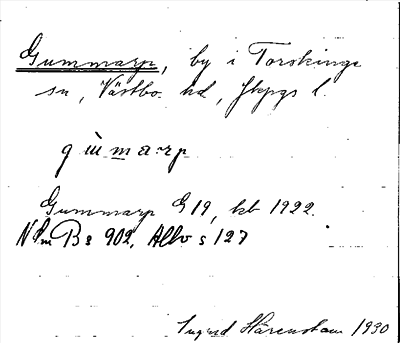 Gummarp, by i Torskinge
sn, Västbo hd, Jkpgs l.
g ù m a:rp
Gummarp G19, kb 1922.
Bs 902, Allbo s 127
Ingrid Hårenstam 1930